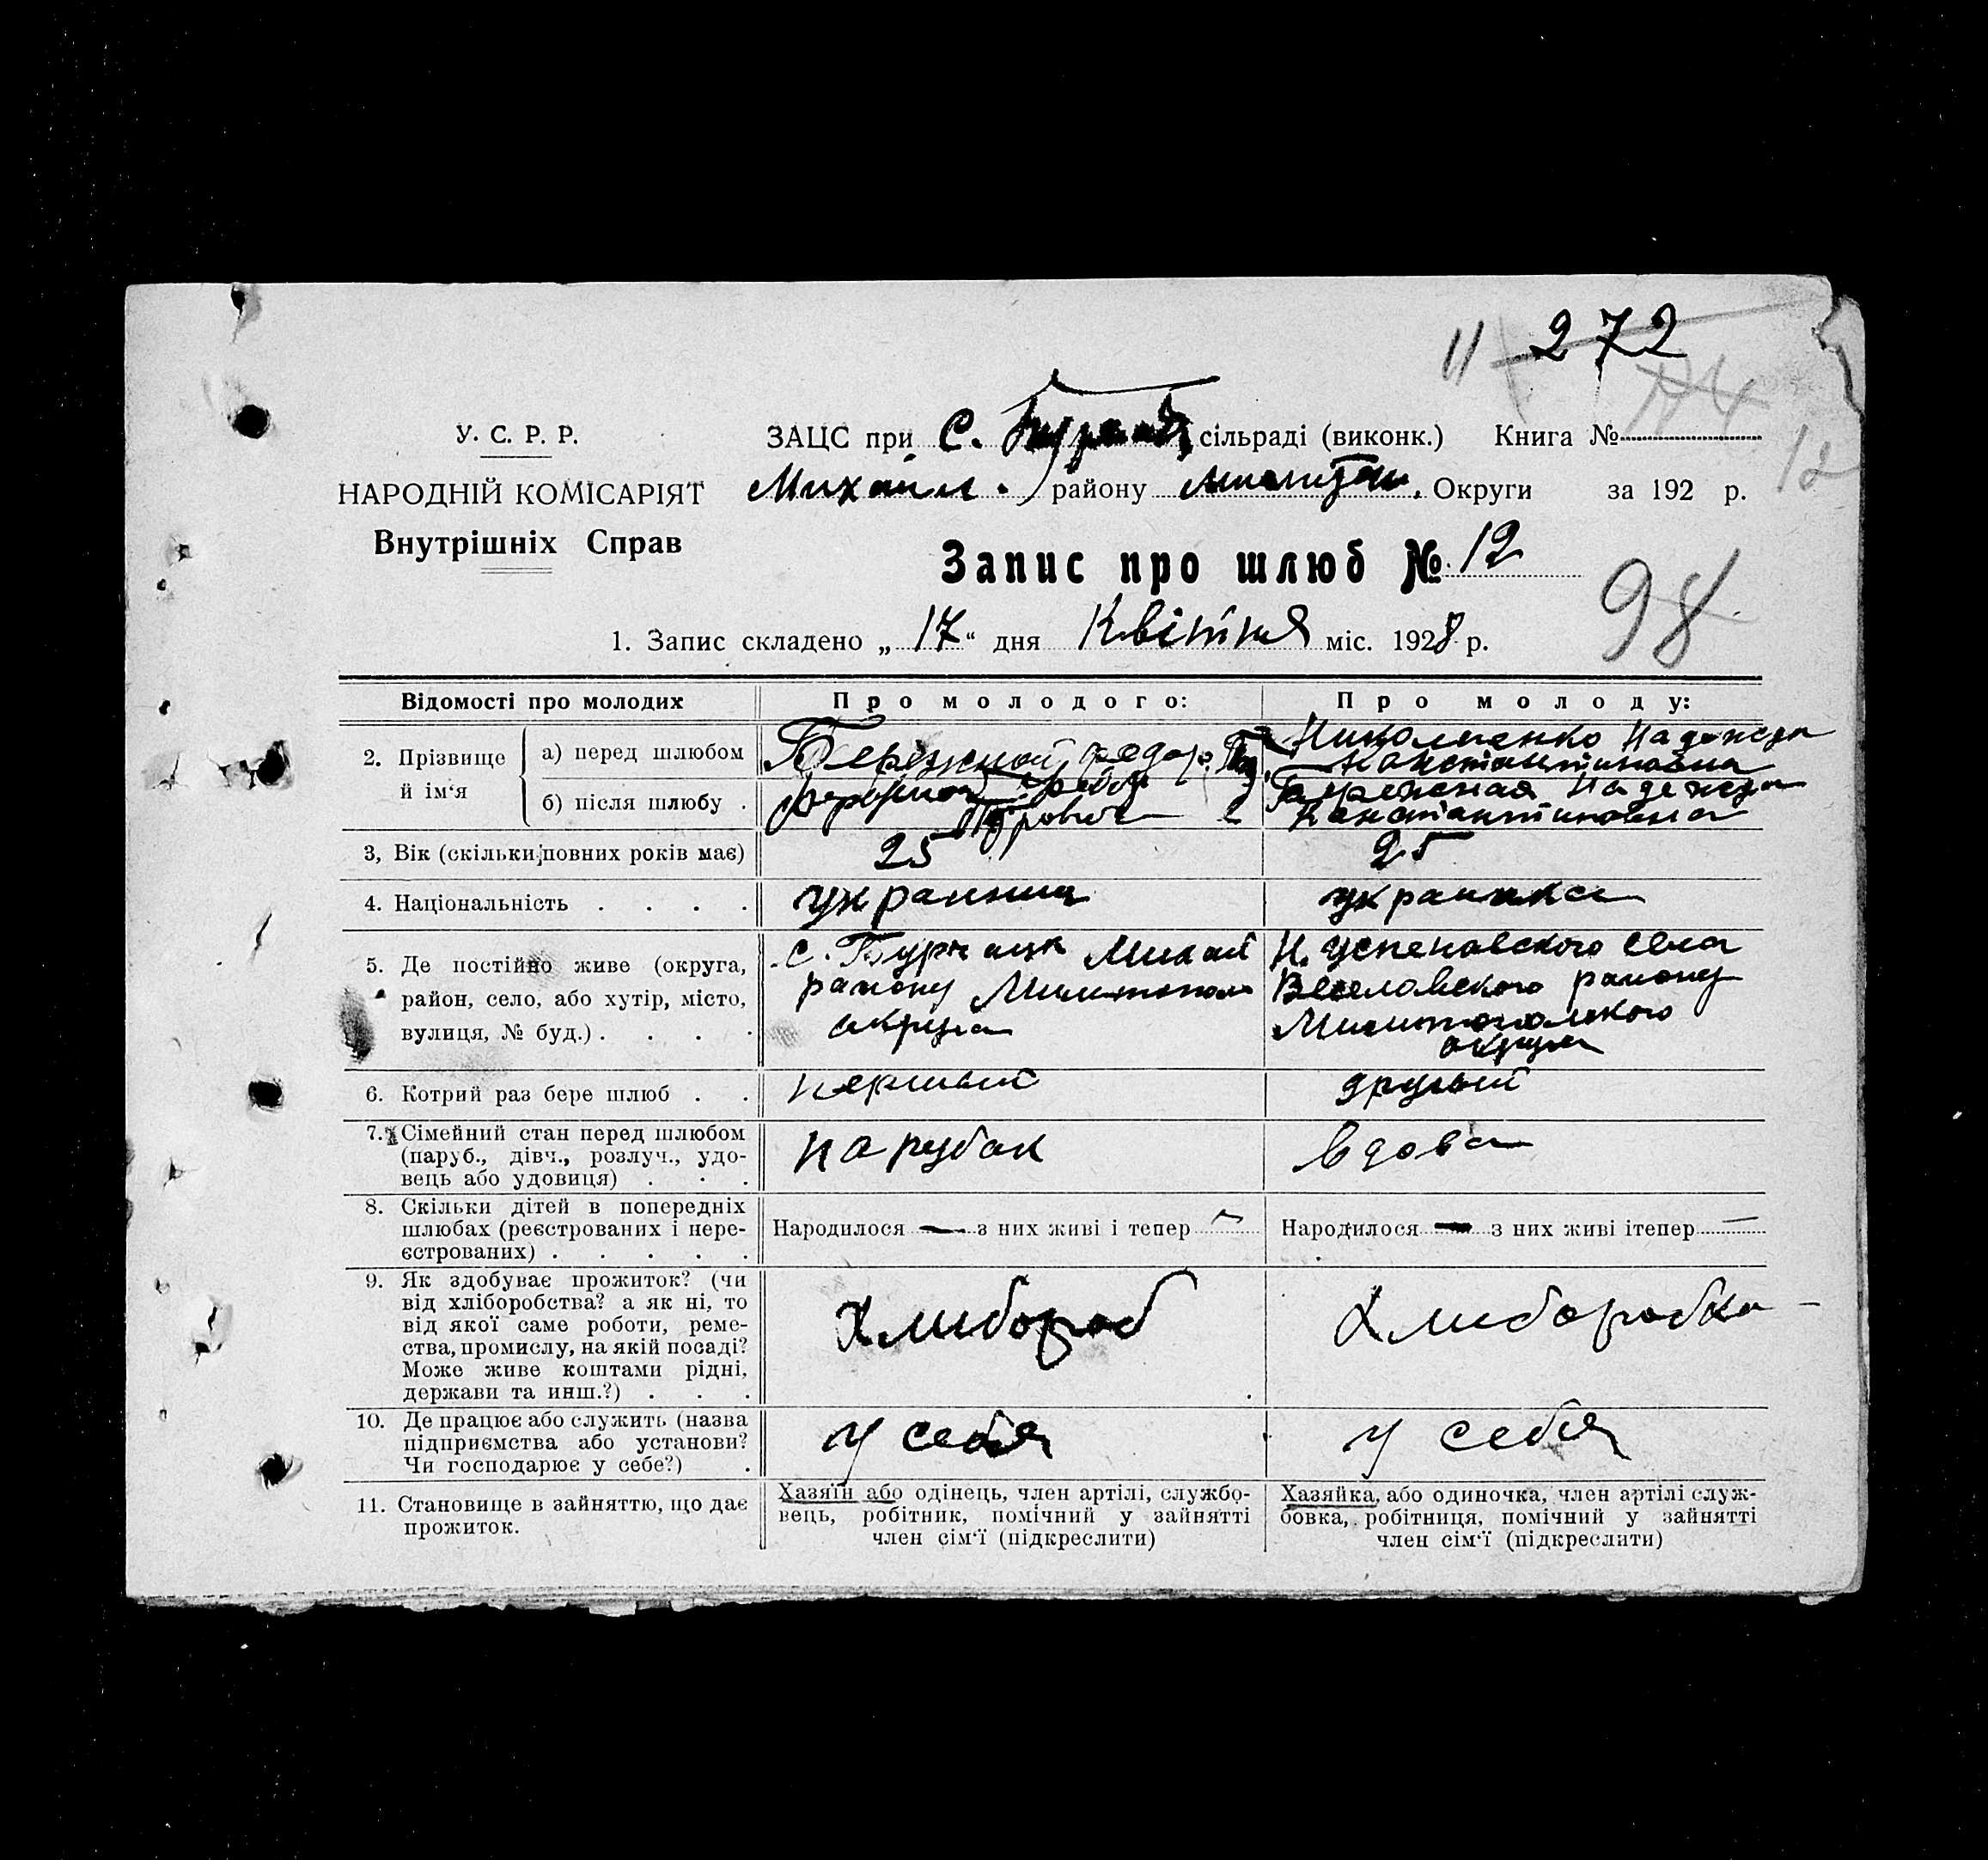 11 272
У. С. Р. Р.
ЗАЦС при с. сільраді (виконк.) Книга №
12
НАРОДНІЙ КОМІСАРІЯТ
Михайл. району Округи за 192 р.
Внутрішніх Справ
Запис про шлюб № 12
98
1. Запис складено „ 17 “ дня Квітня міс. 1928 р.
Відомості про молодих
Про молодого:
Про молоду:
2. Прізвище й ім‘я
а) перед шлюбом
Бережной Федор
Николаенко Надежда
Константиновна
б) після шлюбу .
Бережной Федор
Петрович
Бережная Надежда
Константиновна
3, Вік (скільки повних років має)
25
25
4. Національність . . . .
украинец
украинка
5. Де постійно живе (округа,
район, село, або хутір, місто,
вулиця, № буд.) . . . .
с. Бурчацк Михай
району Милитополь
округа
Н. Успеновского села
Веселовского району
Милитопольского
округа
6. Котрий раз бере шлюб . .
первый
другый
7. Сімейний стан перед шлюбом
(паруб., дівч., розлуч., удо-
вець або удовиця) . . .
парубок
вдова
8. Скільки дітей в попередніх
шлюбах (реєстрованих і нере-
єстрованих) . . . . .
Народилося — з них живі і тепер —
Народилося — з них живі ітепер —
9. Як здобуває прожиток? (чи
від хліборобства? а як ні, то
від якої саме роботи, реме-
ства, промислу, на якій посаді?
Може живе коштами рідні,
держави та инш.?) . . .
Хлибороб
Хлиборобка
10. Де працює або служить (назва
підприємства або установи?
Чи господарює у себе?) .
у себя
у себя
11. Становище в зайняттю, що дає
прожиток.
Хазяїн або одінець, член артілі, службо-
вець, робітник, помічний у зайнятті
член сім‘ї (підкреслити)
Хазяйка, або одиночка, член артілі служ-
бовка, робітниця, помічний у зайнятті
член сім‘ї (підкреслити)